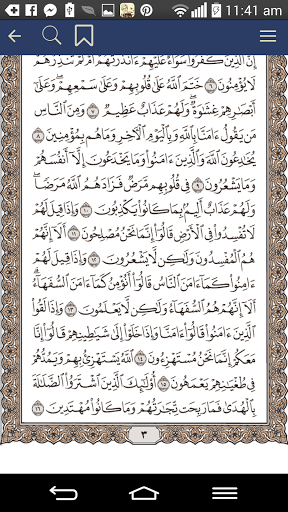 11:41 am
إِنَّ الَّذِينَ كَفَرُوا سَوَاءٌ عَلَيْهِمْ ءَأَنذَرْتَهُمْ أَمْ لَمْ تُنذِرْهُمْ
لَا يُؤْمِنُونَ ٦ خَتَمَ اللَّهُ عَلَىٰ قُلُوبِهِمْ وَعَلَىٰ سَمْعِهِمْ ۖ وَعَلَىٰ
أَبْصَارِهِمْ غِشَاوَةٌ ۖ وَلَهُمْ عَذَابٌ عَظِيمٌ ٧ وَمِنَ النَّاسِ
مَن يَقُولُ ءَامَنَّا بِاللَّهِ وَبِالْيَوْمِ الْآخِرِ وَمَا هُم بِمُؤْمِنِينَ ٨
يُخَادِعُونَ اللَّهَ وَالَّذِينَ ءَامَنُوا وَمَا يَخْدَعُونَ إِلَّا أَنفُسَهُمْ
وَمَا يَشْعُرُونَ ٩ فِي قُلُوبِهِم مَّرَضٌ فَزَادَهُمُ اللَّهُ مَرَضًا ۖ
وَلَهُمْ عَذَابٌ أَلِيمٌ بِمَا كَانُوا يَكْذِبُونَ ١٠ وَإِذَا قِيلَ لَهُمْ
لَا تُفْسِدُوا فِي الْأَرْضِ قَالُوا إِنَّمَا نَحْنُ مُصْلِحُونَ ١١ أَلَا إِنَّهُمْ
هُمُ الْمُفْسِدُونَ وَلَٰكِن لَّا يَشْعُرُونَ ١٢ وَإِذَا قِيلَ لَهُمْ
ءَامِنُوا كَمَا ءَامَنَ النَّاسُ قَالُوا أَنُؤْمِنُ كَمَا ءَامَنَ السُّفَهَاءُ ۗ
أَلَا إِنَّهُمْ هُمُ السُّفَهَاءُ وَلَٰكِن لَّا يَعْلَمُونَ ١٣ وَإِذَا لَقُوا
الَّذِينَ ءَامَنُوا قَالُوا ءَامَنَّا وَإِذَا خَلَوْا إِلَىٰ شَيَاطِينِهِمْ قَالُوا إِنَّا
مَعَكُمْ إِنَّمَا نَحْنُ مُسْتَهْزِءُونَ ١٤ اللَّهُ يَسْتَهْزِئُ بِهِمْ وَيَمُدُّهُمْ
فِي طُغْيَانِهِمْ يَعْمَهُونَ ١٥ أُولَٰئِكَ الَّذِينَ اشْتَرَوُا الضَّلَالَةَ
بِالْهُدَىٰ فَمَا رَبِحَت تِّجَارَتُهُمْ وَمَا كَانُوا مُهْتَدِينَ ١٦
٣